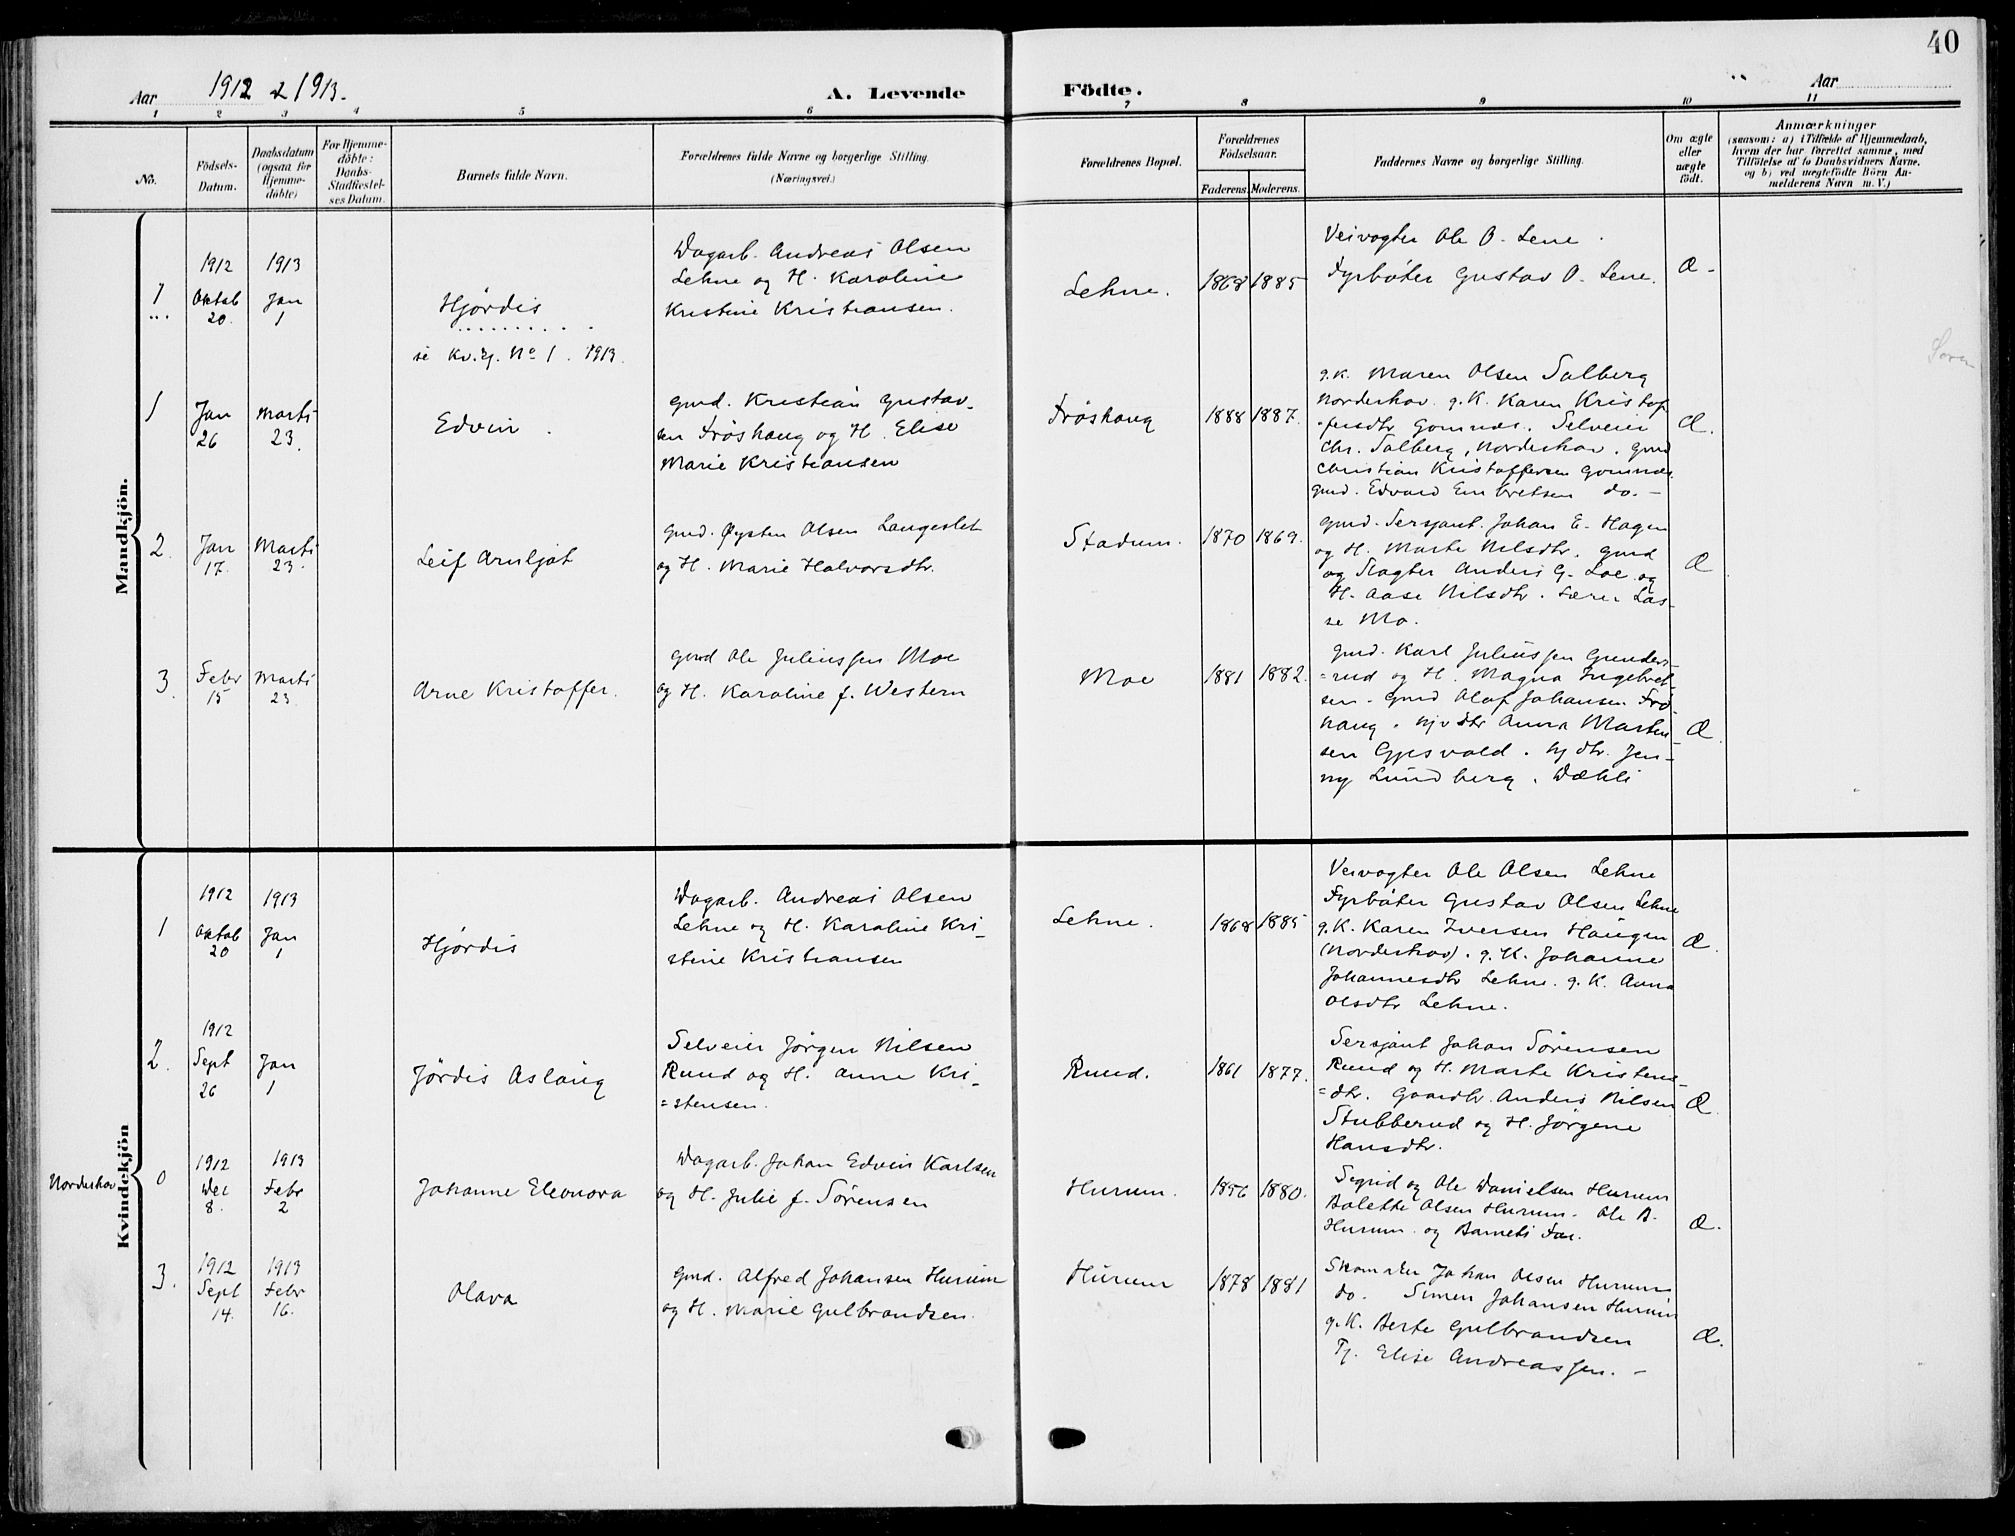 40
Aar 1912 & 1913.
A. Levende Födte.
Aar
1 2 3 4 5 6 7 8 9 10 11
No.
Födsels-Datum.
Daabsdatum (ogsaa for Hjemme-döbte)
For Hjemme-döbte: Daabs-Stadfæstel-ses Datum.
Barnets fulde Navn.
Forældrenes fulde Navne og borgerlige Stilling. (Næringsvei.)
Forældrenes Bopæl.
Forældrenes Födselsaar.
Faderens. Moderens.
Faddernes Navne og borgerlige Stilling.
Om ægte eller uægte födt.
Anmærkninger
(saasom: a) i Tilfælde af Hjemmedaab,
hvem der har forrettet samme, med
Tilföielse af to Daabsvidners Navne,
og b) ved uægtefödte Börn An-
melderens Navn m. V.)
Mandkjön.
1
1912 Oktob 20.
1913 Jan 1
Hjördis
se Kv.kj. No 1. 1913.
Dagarb. Andreas Olsen
Lehne og H. Karoline
Kristine Kristiansen.
Lehne.
1868 1885
Veivogter Ole O. Lene.
Fyrböter Gustav O. Lene.
Æ.
1
Jan 26
Marts 23.
Edvin.
Gmd. Kristian Gustav-
sen Fröshaug og H. Elise
Marie Kristiansen
Fröshaug
1888 1887.
g.k. Maren Olsen Salberg
Norderhov. g.K. Karen Kristof
fersdtr Gomnæs. Selveier
Chr. Salberg, Norderhov. Gmd
Christian Kristoffersen Gomnæs
Gmd. Edvard Embretsen do. -
Æ.
2.
Jan 17.
Marts 23.
Leif Arnljot
Gmd. Øysten Olsen Langeslet
og H. Marie Halvorsdtr.
Stadum.
1870 1869.
Gmd. Sersjant Johan E. Hagen
og H. Marte Nilsdtr. Gmd
og Slagter Anders G. Loe og
H. Aase Nilsdtr. Lærer Las-
se Mo.
Æ
3.
Febr 15
Marts 23
Arne Kristoffer.
Gmd Ole Juliussen Moe
og H. Karoline f. Western
Moe
1881 1882.
Gmd. Karl Juliussen Gunders-
=rud og H. Magna Ingebret-
sen. Gmd Olaf Johansen Frö-
haug. Djv dtr Anna Marthin-
sen Gjesvold. Gj dtr. Jen-
ny Lundberg. Dæhli
Æ.
Kvindekjön
1
1912 Oktob 20
1913 Jan 1
Hjördis
Dagarb. Andreas Olsen
Lehne og H. Karoline Kri-
stine Kristiansen
Lehne.
1868 1885
Veivogter Ole Olsen Lehne
Fyrböter Gustav Olsen Lehne
g.K. Karen Iversen Haugen
(Norderhov). g.K. Johanne
Johannesdtr Lehne. g.K. Anna
Olsdtr Lehne.
Æ.
2.
1912 Sept 26
Jan 1
Jördis Aslaug
Selveier Jörgen Nilsen
Ruud og H. Anne Kri-
=stensen.
Ruud.
1861 1877.
Sersjant Johan Sörensen
Ruud og H. Marte Kristens-
=dtr. Gaardbr. Anders Nilsen
Stubberud og H. Jörgene
Hansdtr.
Æ.
Norderhov
0
1912 Dec 8.
1913 Febr 2
Johanne Eleonora
Dagarb. Johan Edvin Karlsen
og H. Julie f. Sörensen
Hurum.
1856 1880.
Sigrid og Ole Danielsen Hurum
Bolette Olsen Hurum. Ole B.
Hurum. og Barnets Far.
Æ.
3.
1912 Sept 14.
1913 Febr 16.
Olava
Gmd. Alfred Johansen Hurum
og H. Marie Gulbrandsen.
Hurum
1878 1881
Skomaker Johan Olsen Hurum
do. Simen Johansen Hurum
g.K. Berte Gulbrandsen
Pj. Elise Andreassen. -
Æ.